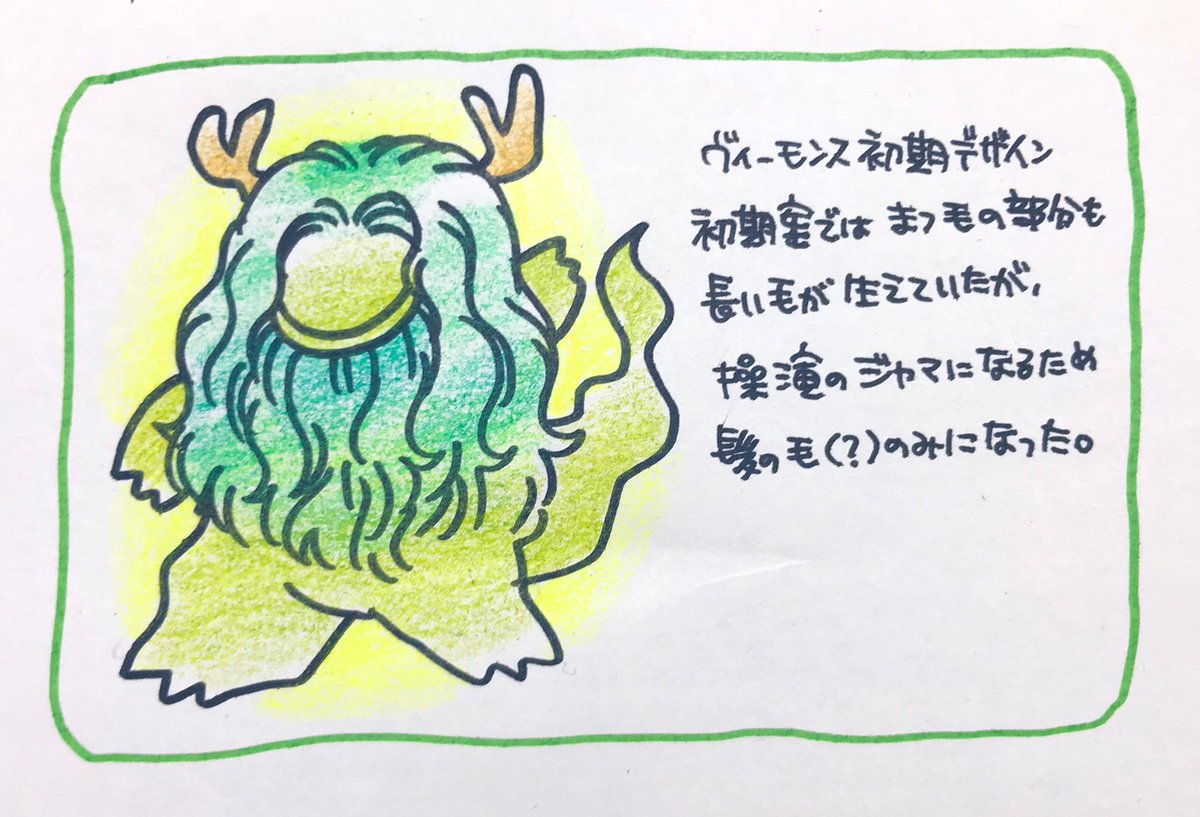 ヴィーモンス初期デザイン
初期案では まつ毛の部分も
長い毛が生えていたが、
操演のジャマになるため
髪の毛(?)のみになった。